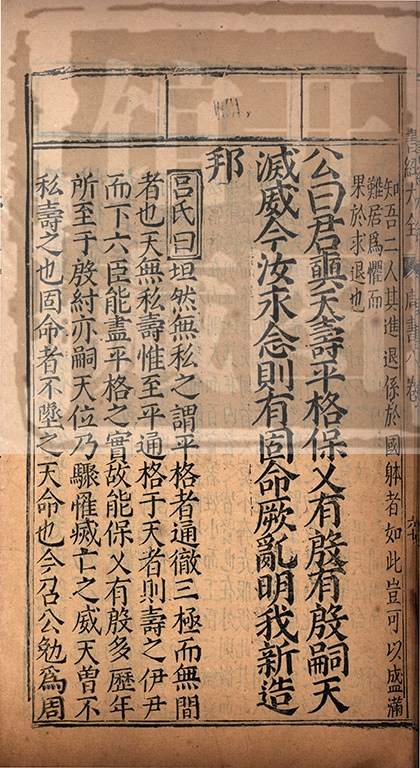 知吾二人其進退係於國躰者如此豈可以盛滿
難居爲懼而
果於求退也
公曰君奭天壽平格保乂有殷有殷嗣天
滅威今汝永念則有固命厥亂明我新造
邦
呂氏曰坦然無私之謂平格者通徹三極而無間
者也天無私壽惟至平通格于天者則壽之伊尹
而下六臣能盡平格之實故能保乂有殷多歷年
所至于殷紂亦嗣天位乃驟罹滅亡之威天曾不
私壽之也固命者不墜之天命也今召公勉爲周